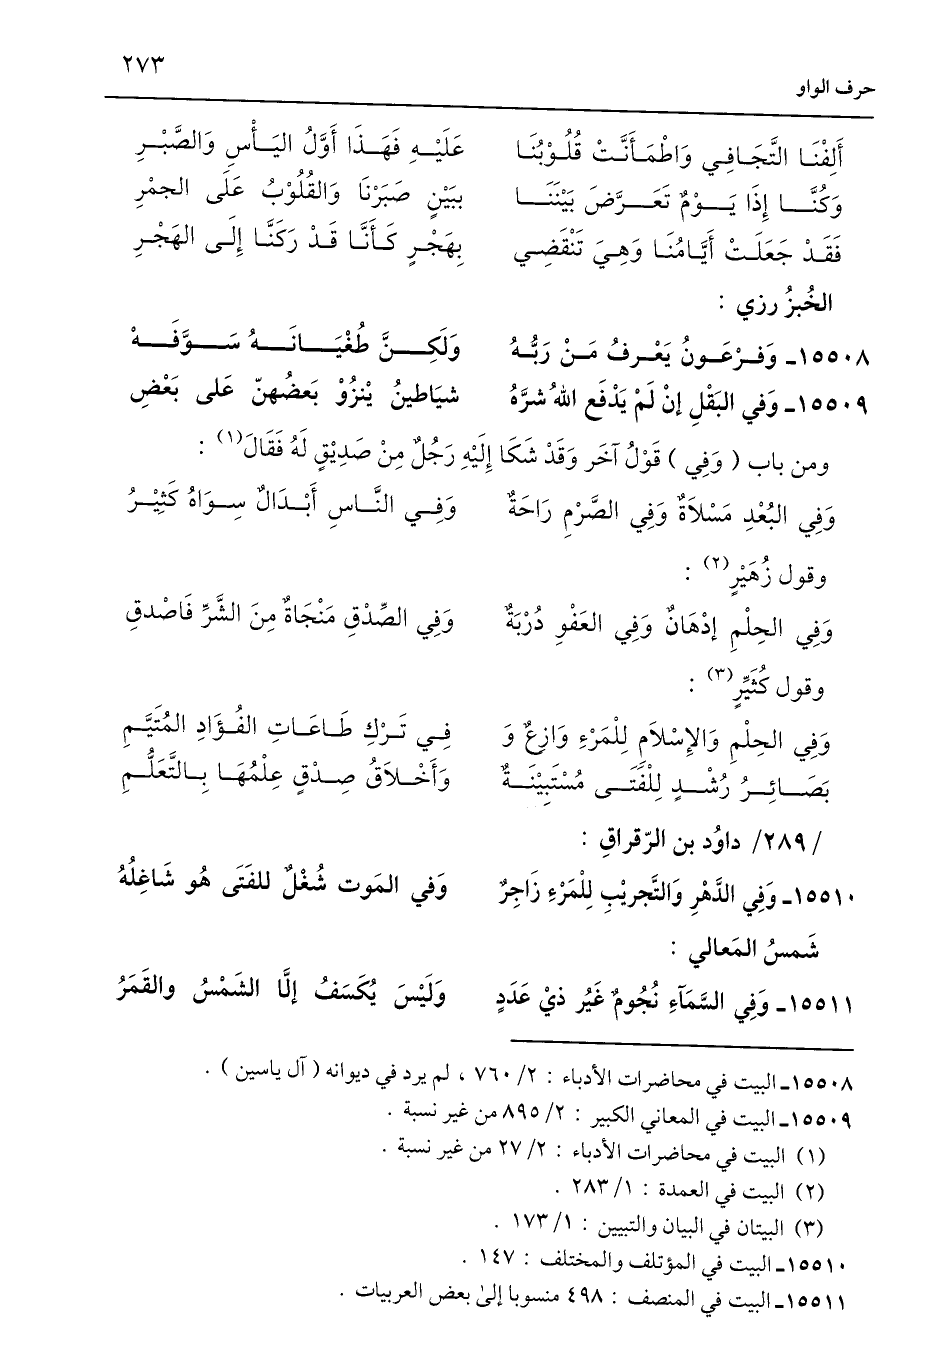 ٢٧٣
حرف الواو
أَلِفْنَا التَّجَافِي وَاطْمَأَنَّتْ قُلُوبُنَا عَلَيْهِ فَهَذَا أَوَّلُ اليَأْسِ وَالصَّبْرِ
وَكُنَّا إِذَا يَوْمٌ تَعَرَّضَ بَيْنَنَا بِبَيْنٍ صَبَرْنَا وَالقُلُوبُ عَلَى الجمْرِ
فَقَدْ جَعَلَتْ أَيَّامُنَا وَهِيَ تَنْقَضِي بِهَجْرٍ كَأَنَّا قَدْ رَكَنَّا إِلَى الهَجْرِ
الخُبزُ رزي :
١٥٥٠٨ـ وَفِرْعَونُ يَعْرِفُ مَنْ رَبُّهُ وَلَكِنَّ طُغْيَانَهُ سَوَّفَهْ
١٥٥٠٩ـ وَفي البَقْلِ إنْ لَمْ يَدْفَعِ اللهُ شرَّهُ شيَاطينُ يْنزُوْ بَعضُهنّ عَلى بَعْضِ
ومن باب ( وَفِي ) قَوْلُ آخَر وَقَدْ شَكَا إِلَيْهِ رَجُلٌ مِنْ صَدِيْقٍ لَهُ فَقَالَ(١) :
وَفِي البُعْدِ مَسْلَاةٌ وَفِي الصَّرْمِ رَاحَةٌ وَفِي النَّاسِ أَبْدَالٌ سِوَاهُ كَثِيْرُ
وقول زُهَيْرٍ(٢) :
وَفِي الحِلْمِ إِدْهَانٌ وَفِي العَفْوِ دُرْبَةٌ وَفِي الصِّدْقِ مَنْجَاةٌ مِنَ الشَّرِّ فَاصْدقِ
وقول كُثَيِّرٍ(٣) :
وَفِي الحِلْمِ وَالإِسْلَامِ لِلْمَرْءِ وَازِعٌ وَ فِي تَرْكِ طَاعَاتِ الفُؤَادِ المُتَيَّمِ
بَصَائِرُ رُشْدٍ لِلْفَتَى مُسْتَبِيْنَةٌ وَأَخْلَاقُ صِدْقٍ عِلْمُهَا بِالتَّعَلُّمِ
/ ٢٨٩/ داوُد بن الرّقراقِ :
١٥٥١٠ـ وَفِي الدَّهْرِ وَالتَّجرِيْبِ لِلْمَرْءِ زَاجِرٌ وَفي المَوت شُغْلٌ للفَتَى هُو شَاغِلُهُ
شَمسُ المَعالي :
١٥٥١١ـ وَفِي السَّمَآءِ نُجُومٌ غَيُر ذيْ عَدَدٍ وَلَيْسَ يُكسَفُ إلَّا الشَمْسُ والقَمَرُ
١٥٥٠٨ـ البيت في محاضرات الأدباء : ٧٦٠/٢ ، لم يرد في ديوانه ( آل ياسين ) .
١٥٥٠٩ـ البيت في المعاني الكبير : ٨٩٥/٢ من غير نسبة .
(١) البيت في محاضرات الأدباء : ٢٧/٢ من غير نسبة .
(٢) البيت في العمدة : ٢٨٣/١ .
(٣) البيتان في البيان والتبيين : ١٧٣/١ .
١٥٥١٠ـ البيت في المؤتلف والمختلف : ١٤٧ .
١٥٥١١ـ البيت في المنصف : ٤٩٨ منسوبا إلىٰ بعض العربيات .